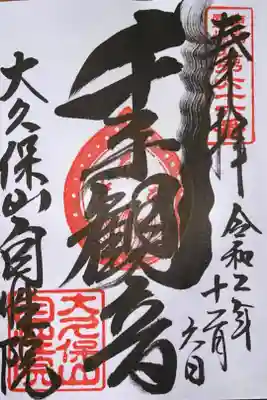 奉拝
令和二年
十一月
六日
千手観音
大久保山自性院
大久保山
自性院